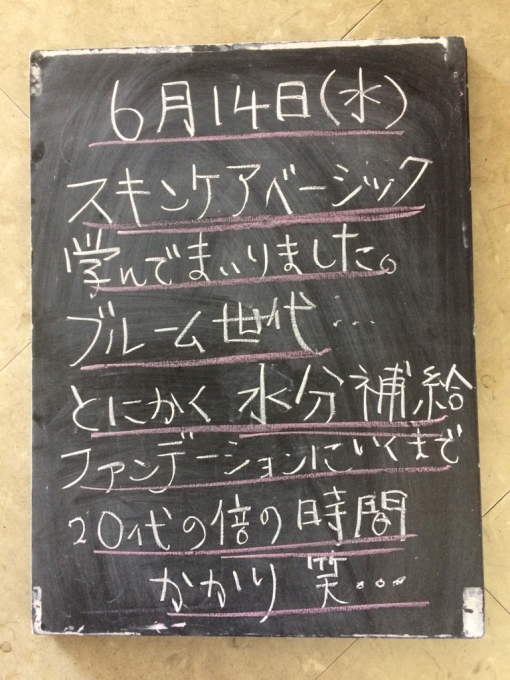 6月14日(水)
スキンケアベーシック
学んでまいりました。
ブルーム世代...
とにかく水分補給
ファンデーションにいくまで
20代の倍の時間
かかり笑...